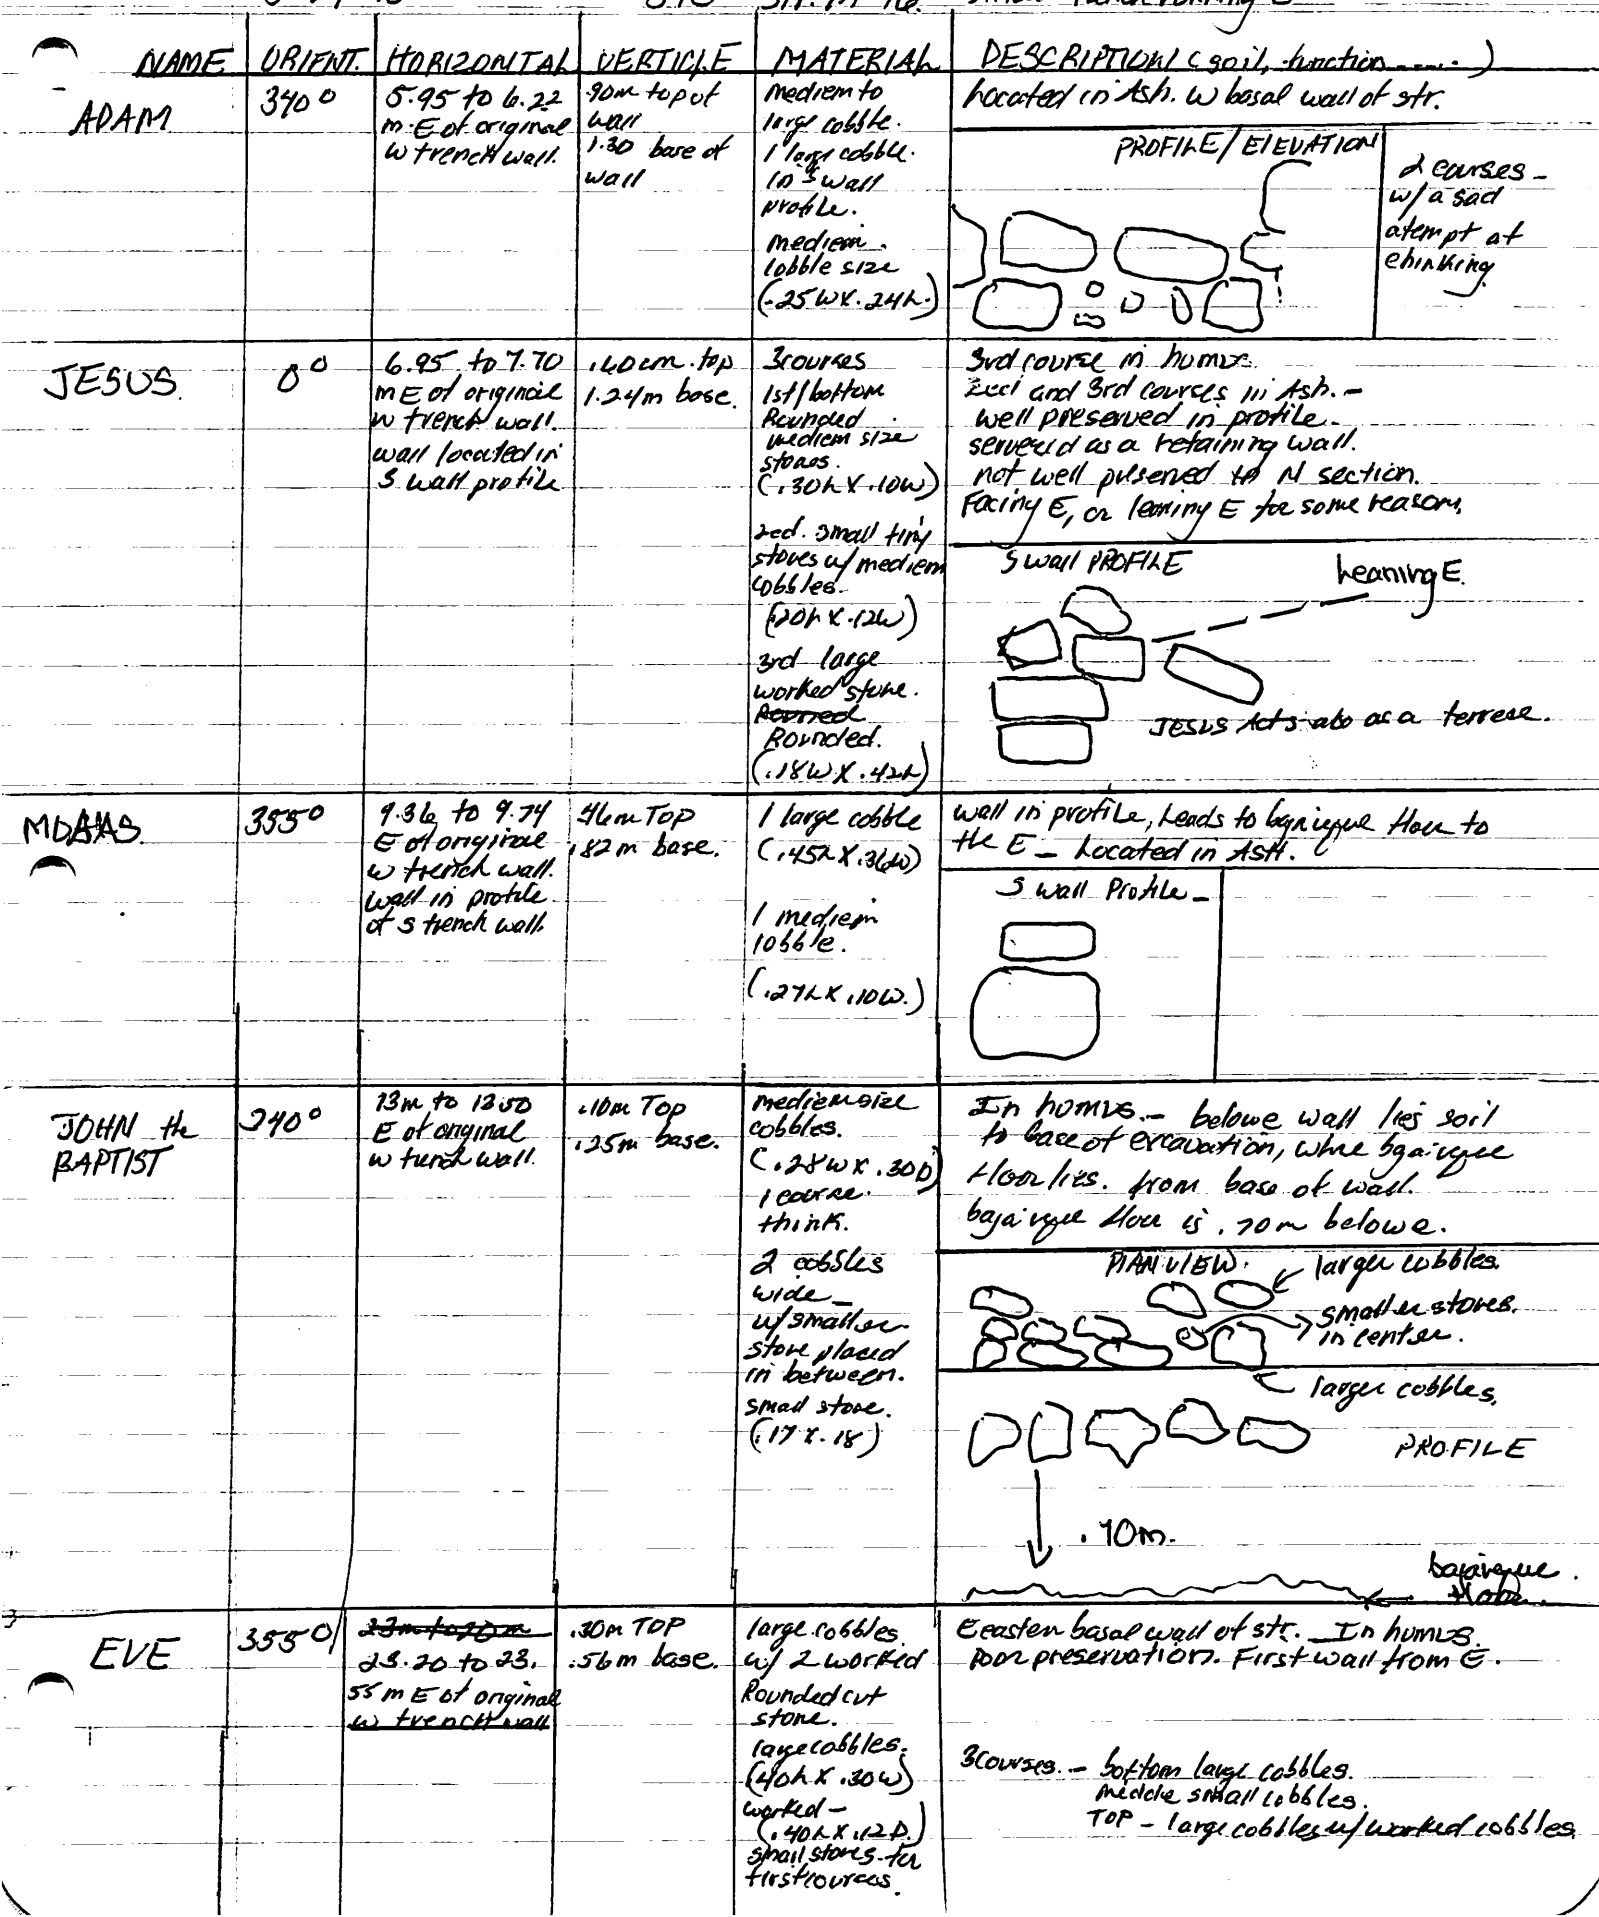 NAME ORIENT. HORIZONTAL VERTICLE MATERIAL DESCRIPTION (soil, function......)
ADAM
340°
5.95 to 6.22
m E of original
W trench wall.
.90m top of
wall
1.30 base of
wall
mediem to
large cobble.
1 large cobble.
in S wall
profile.
mediem
cobble size
(.25W X .24L.)
Located in Ash. W basal wall of str.
PROFILE/ElEVATION
2 courses -
w/ a sad
atempt at
chinking.
JESUS.
0°
6.95 to 7.70
m E of original
W trench wall.
wall located in
S wall profile
.60cm. top
1.24m base.
3 courses
1st/bottom
Rounded
mediem size
stones.
(.30L X .10W)
2ed. small tiny
stones w/ mediem
cobbles.
(20L X .12W)
3rd large
worked stone.
Rounded.
(.18W X .42L)
3rd course in humus.
2ed and 3rd courses in Ash. -
well preserved in profile.
served as a retaining wall.
not well preserved to N section.
Facing E, or leaning E for some reason.
S wall PROFILE
Leaning E.
JESUS Acts also as a terrece.
355°
9.36 to 9.74
E of original
W trench wall.
wall in profile
of S trench wall.
.46m TOP
.82m base.
1 large cobble
(.45L X .36W)
1 mediem
cobble.
(.27L X .10W.)
wall in profile, Leads to bajareque floor to
the E - Located in ASH.
S wall Profile -
JOHN the
BAPTIST
340°
13m to 13.50
E of original
W trench wall.
.10m TOP
.25m base.
mediem size
cobbles.
(.28W X .30D)
1 course.
think.
2 cobbles
wide -
w/ smaller
stone placed
in between.
small stone.
(.17 X .18)
In humus. - belowe wall lies soil
to base of excavation, where bajareque
floor lies. from base of wall.
bajareque floor is .70m belowe.
PLAN VIEW.
larger cobbles.
smaller stones.
in center.
larger cobbles.
PROFILE
.70m.
bajareque.
floor.
EVE
355°
23m to 20m
23.20 to 23.
55 m E of original
W trench wall
.30m TOP
.56m base.
large cobbles
w/ 2 worked
Rounded cut
stone.
large cobbles.
(40L X .30W)
worked -
(.40L X .12D.)
small stones for
first cources.
Eeasten basal wall of str. - In humus.
Poor preservation. First wall from E.
3 courses. - bottom large cobbles.
meddle small cobbles.
TOP - large cobbles w/ worked cobbles